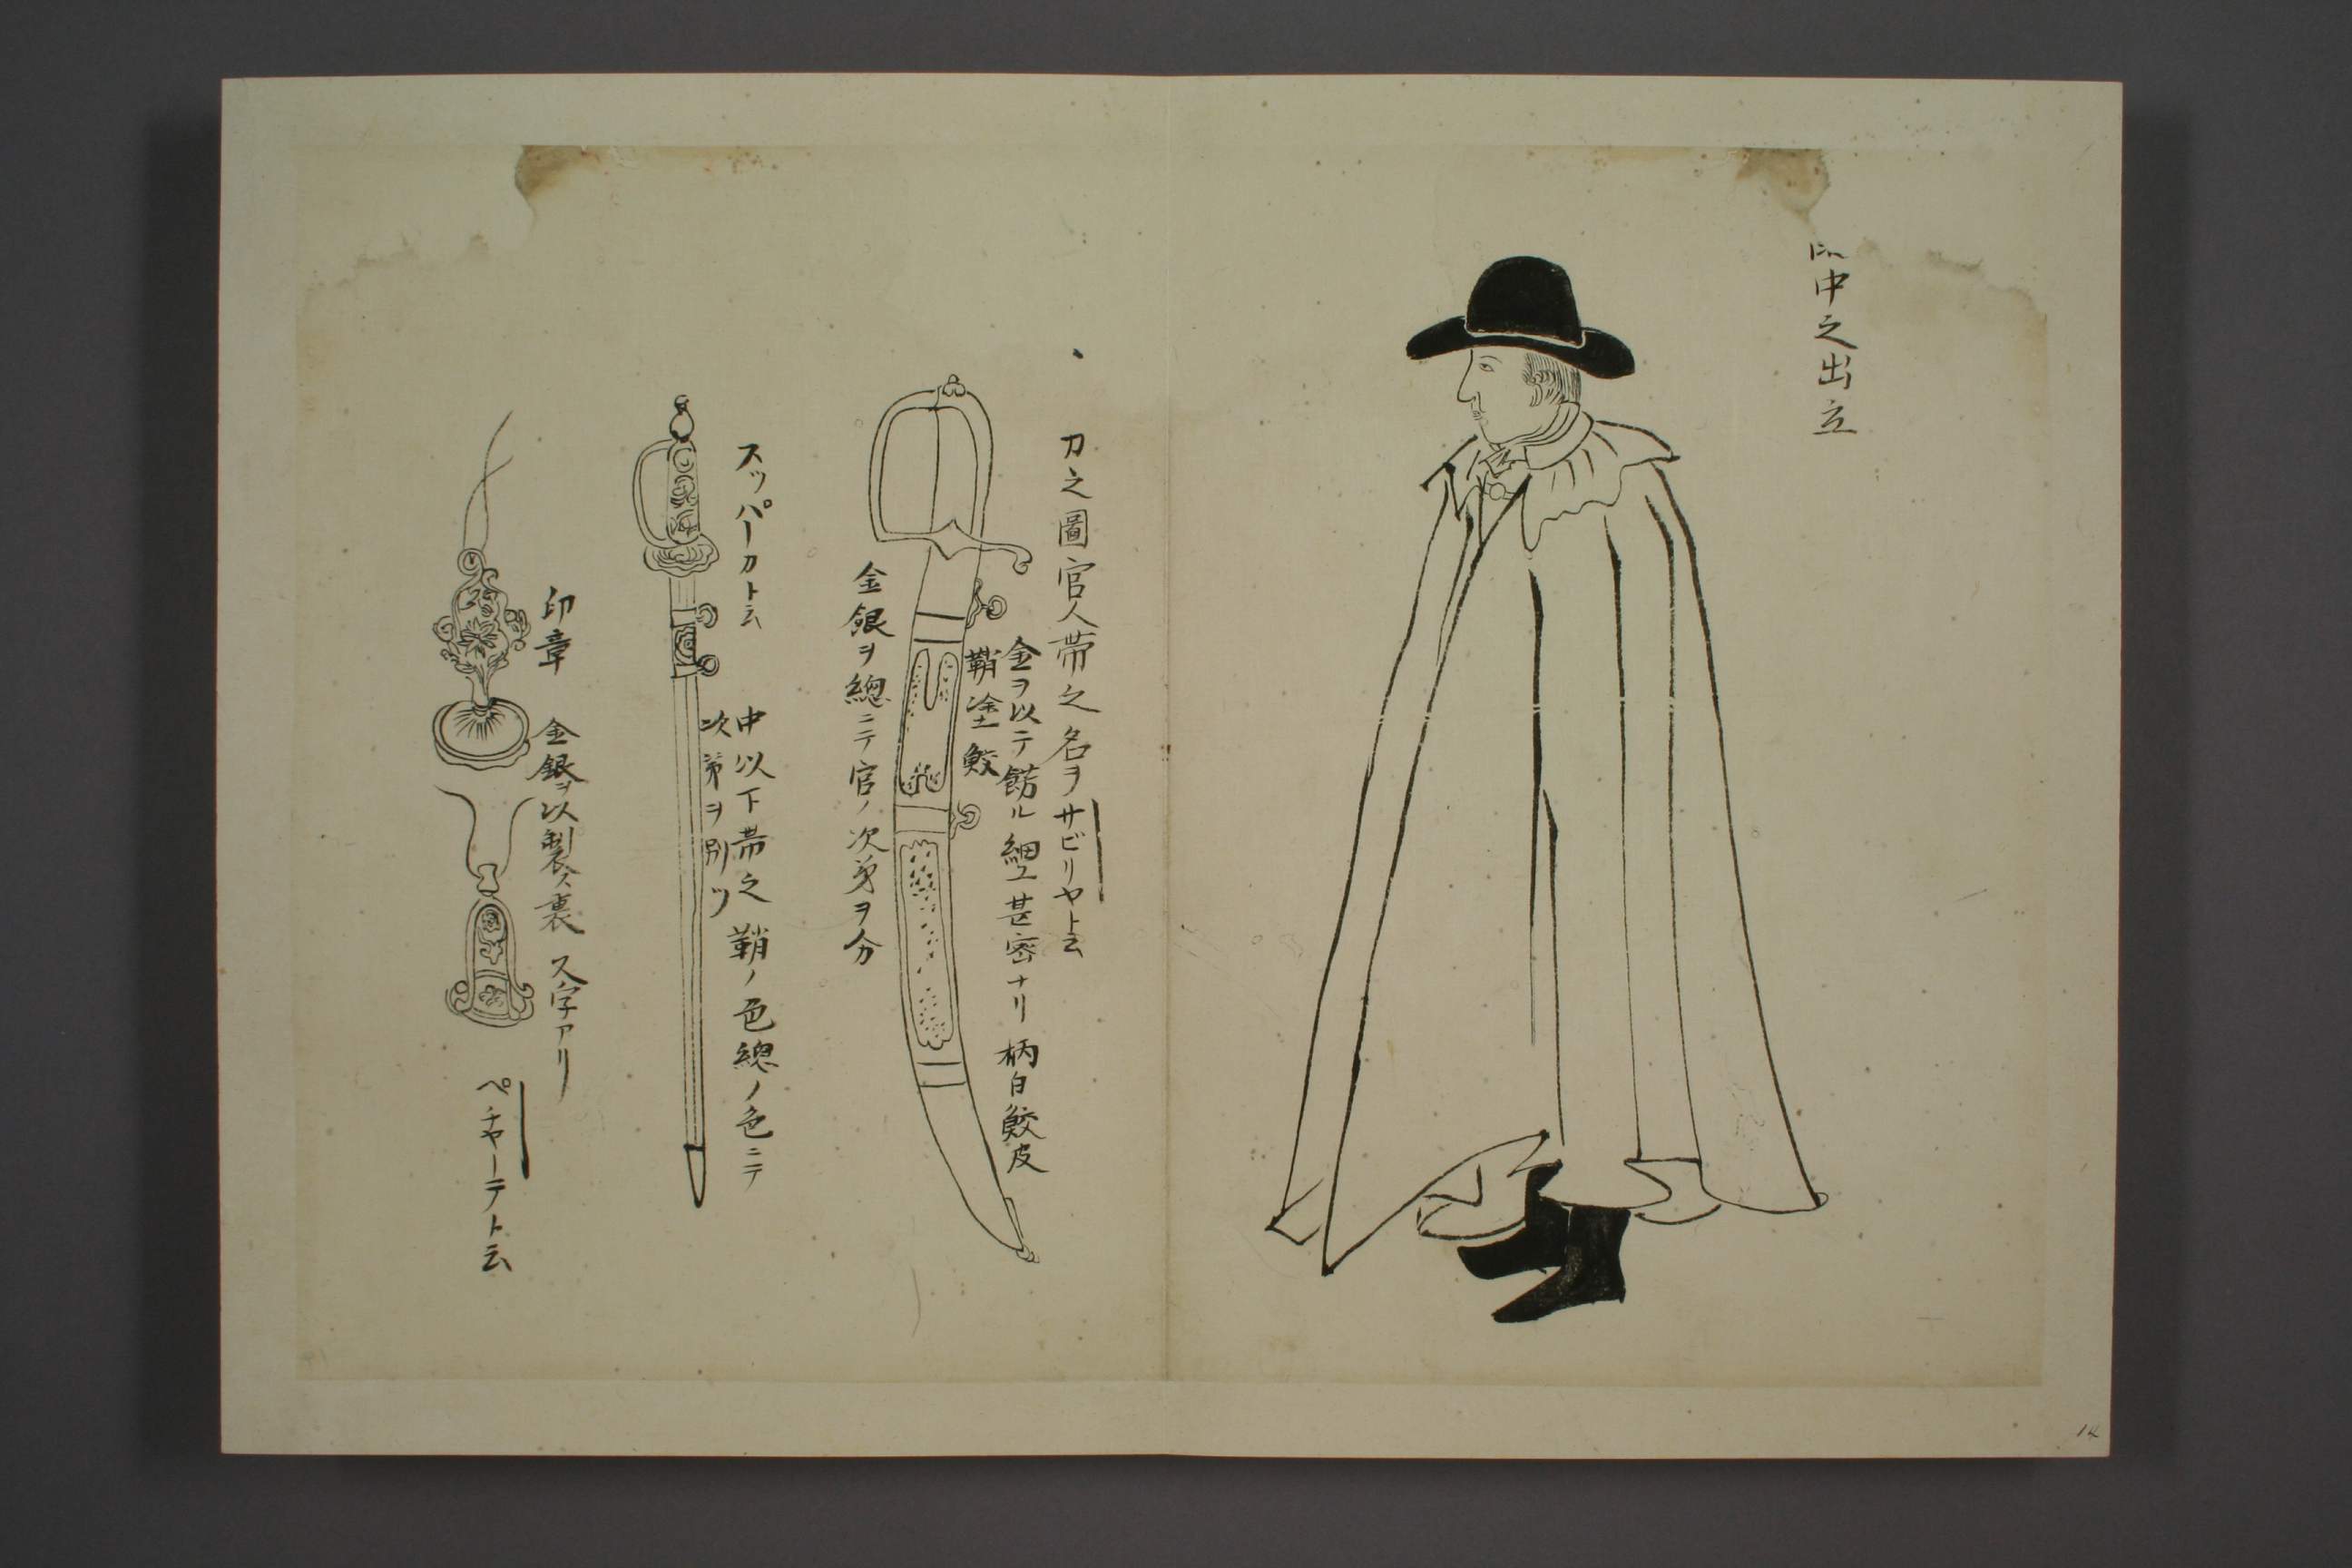 中之出立
刀之圖官人帯之名ヲサビリヤト云
金ヲ以テ餝ル細工甚密ナリ 柄白鮫皮
鞘塗鮫
金銀ヲ總ニテ官ノ次第ヲ分
スッパーカト云
中以下帯之 鞘ノ色總ノ色ニテ
次第ヲ別ツ
印章 金銀ヲ以製ス裏ス字アリ
ペチヤーテト云
14